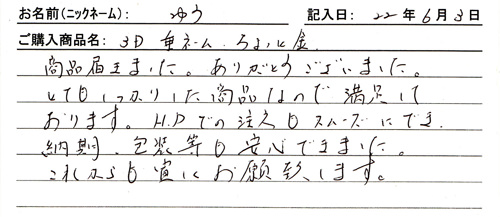 お名前(ニックネーム): ゆう 記入日: 22年6月3日
ご購入商品名: 3D 重ネーム. ちょい上金.
商品届きました。ありがとうございました。
とてもしっかりした商品なので満足して
おります。H.Pでの注文もスムーズにでき、
納期、包装等も安心できました。
これからも宜しくお願致します。